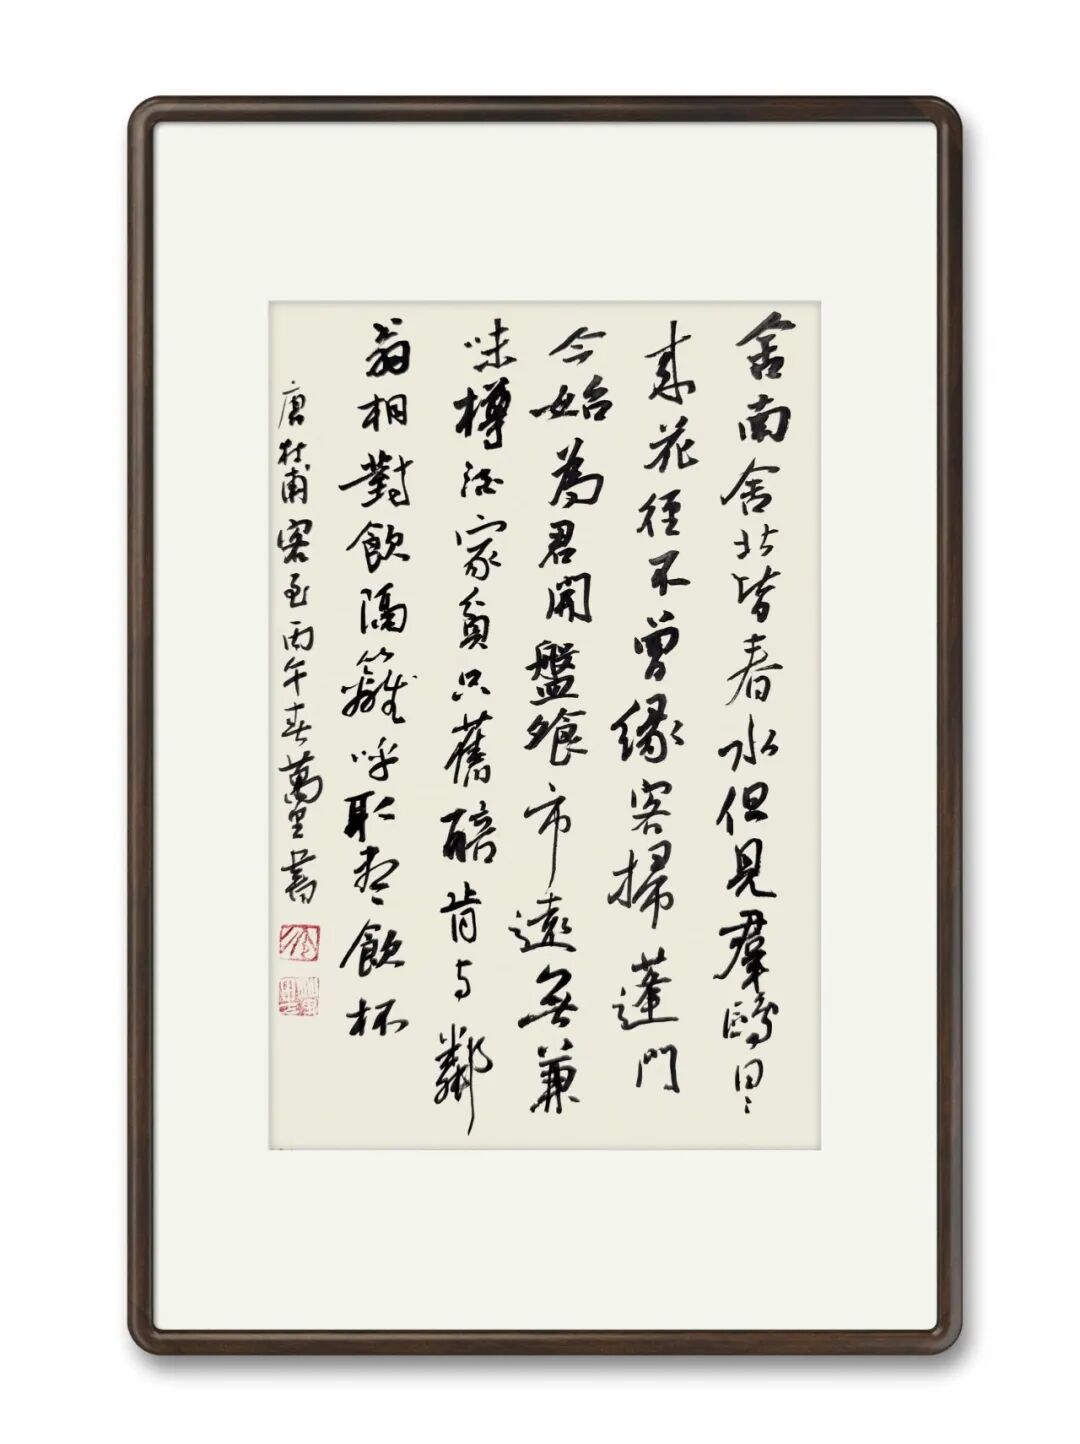 舍南舍北皆春水但見羣鷗日〻
來花徑不曾緣客掃蓬門
今始為君開盤飱市遠無兼
味樽酒家貧只舊醅肯与鄰
翁相對飲隔籬呼取尽飲杯
唐杜甫客至丙午春萬里書